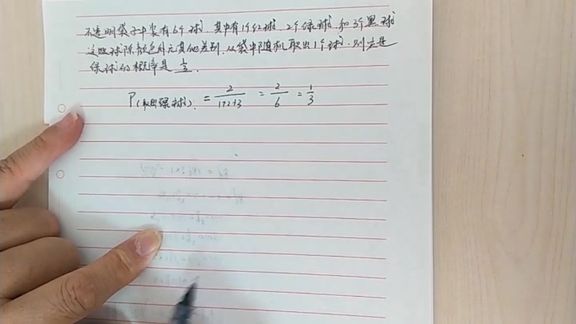 不透明袋子中装有6个球，其中有1个红球、2个绿球和3个黑球
这些球除颜色外无其他差别，从袋中随机取出1个球，则它是
绿球的概率是 1/3.
P(取出绿球) = 2/(1+2+3) = 2/6 = 1/3